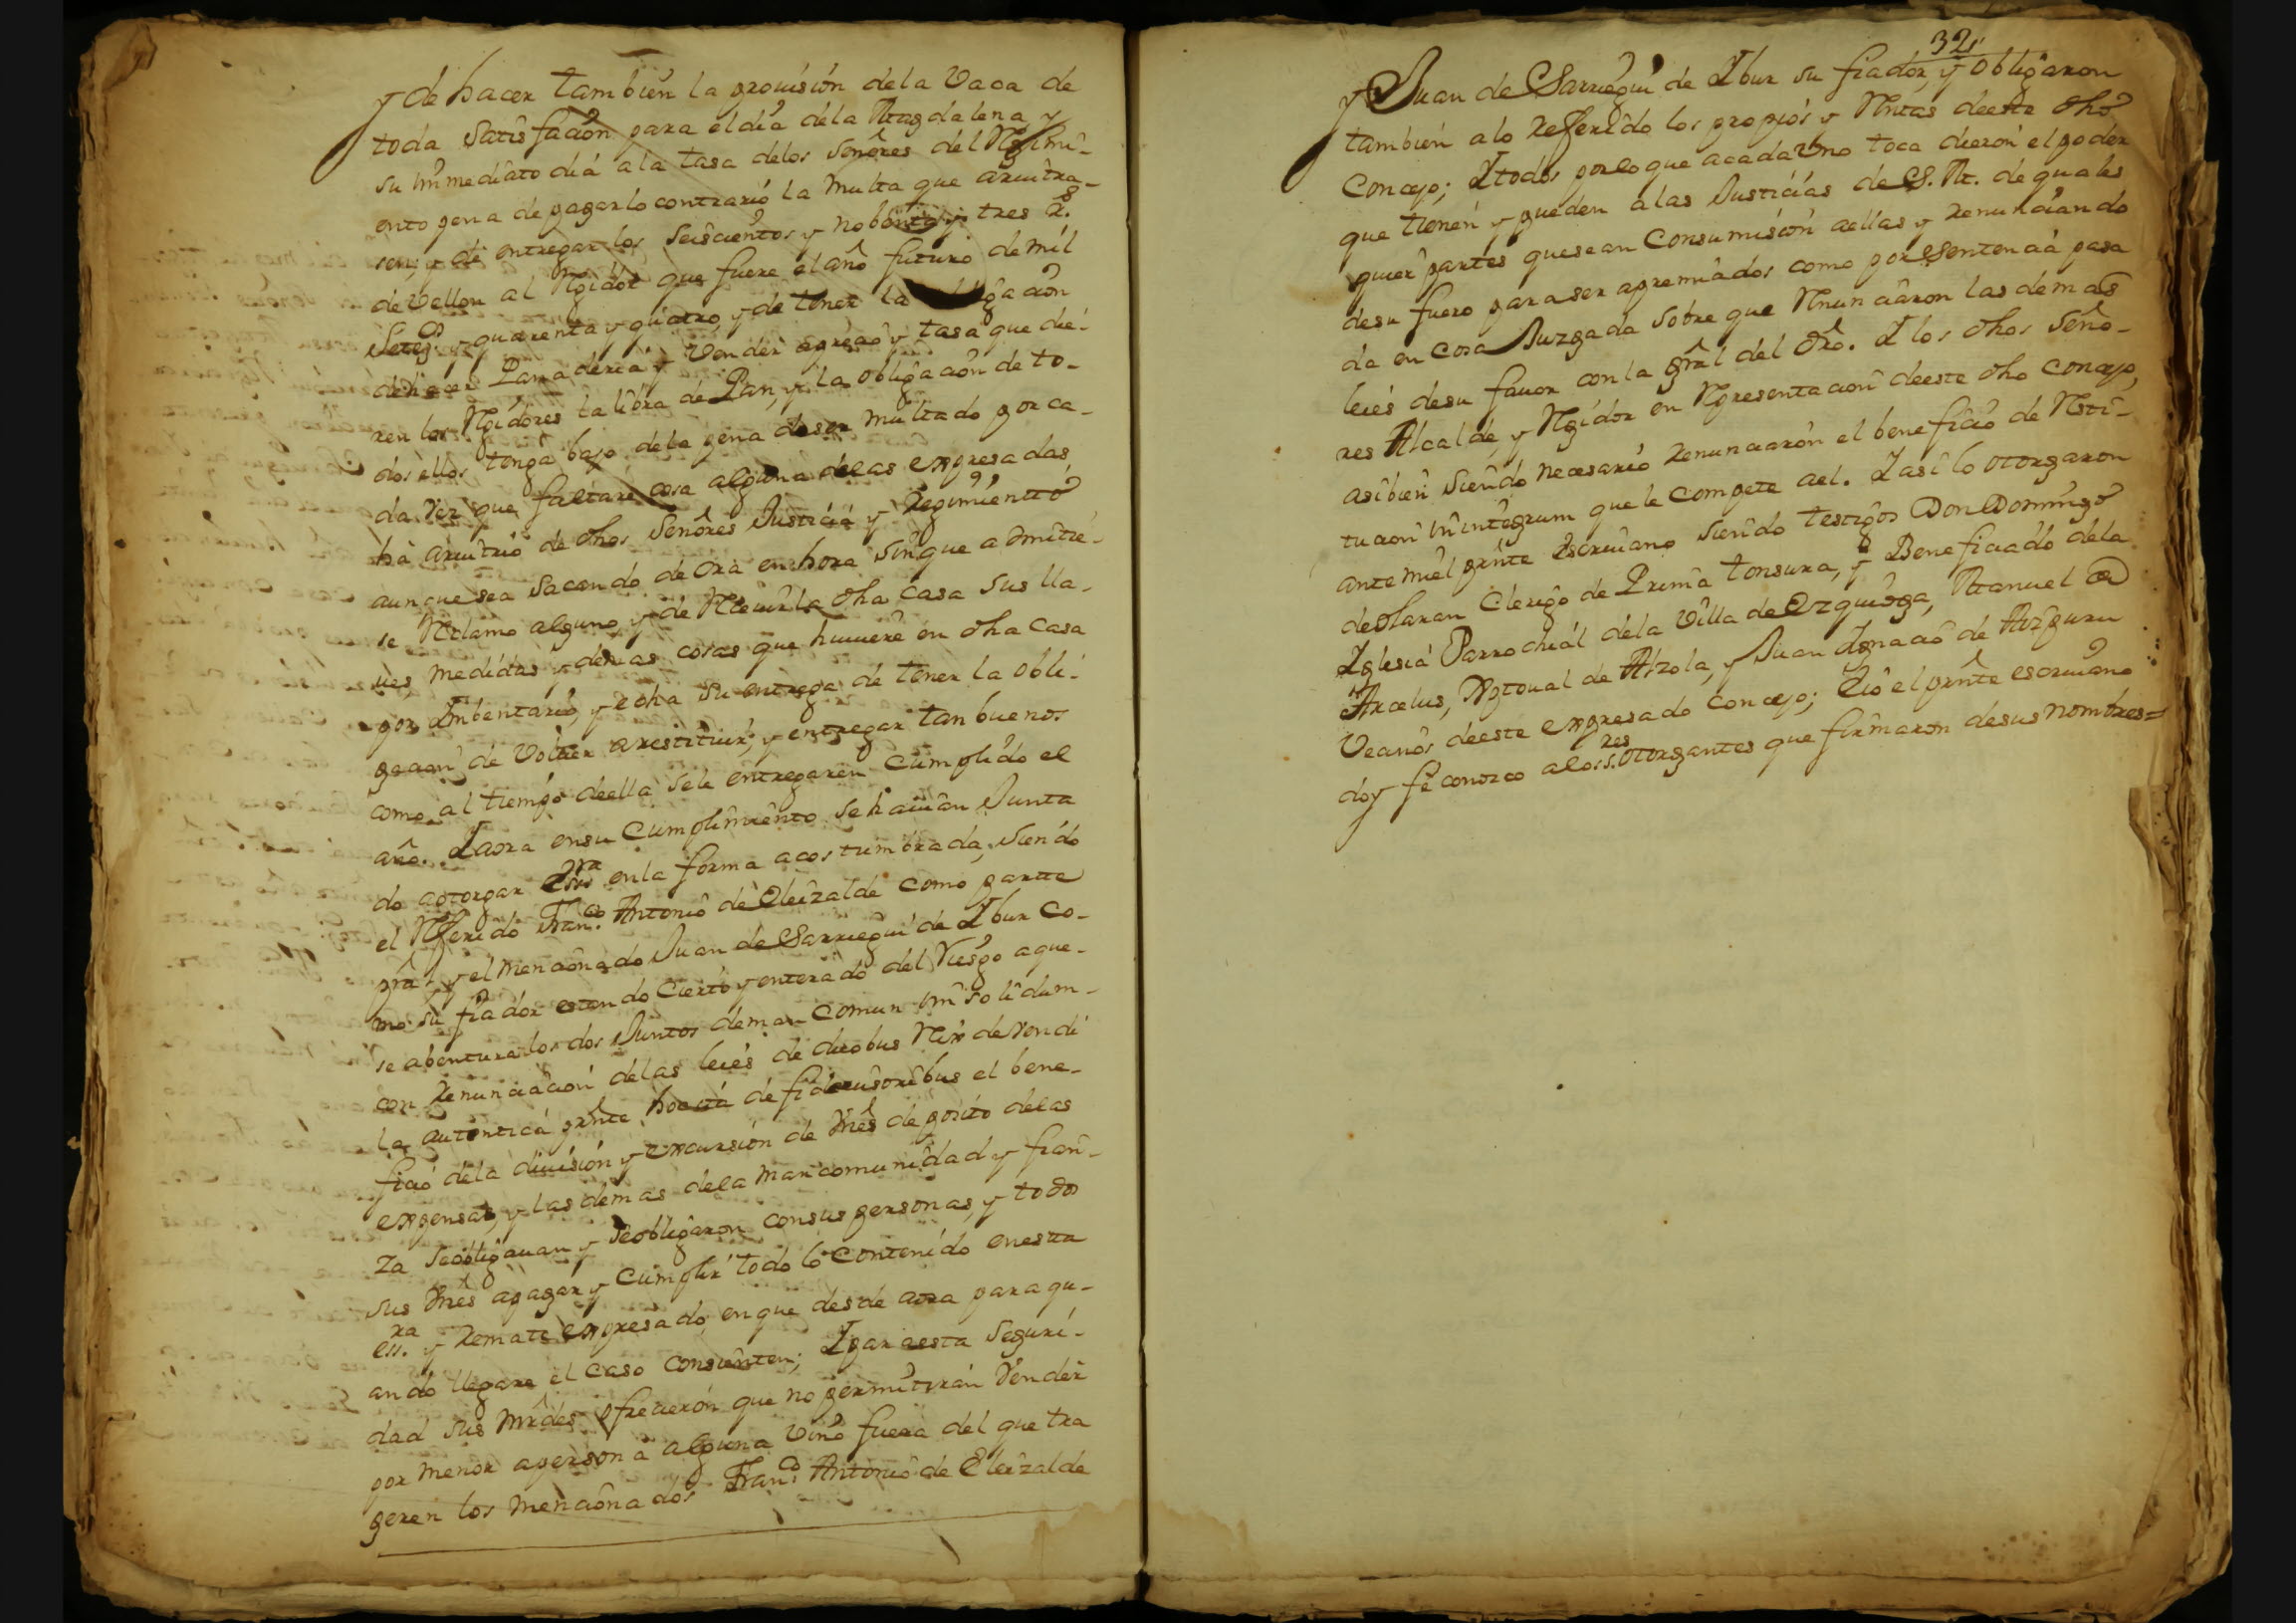 y de hacer tambien la provision dela Vaca de
toda Satisfacion para el dia dela Magdalena y
su inmediato dia a la tasa delos Señores del Regimi-
ento pena de pagar lo contrario la multa que arvitra-
ren; y de entregar los Seiscientos y nobenta y tres Rs.
de Vellon al Regidor que fuere el año futuro de mil
Setezs. y quarenta y quatro, y de tener la obligacion
de hacer Panaderia y Vender a precio y tasa que die-
ren los Regidores la libra de Pan, y la obligacion de to-
dos ellos tenga bajo dela pena deser multado por ca-
da vez que faltare cosa alguna delas expresadas
hà arvitrio de dhos Señores Justicia y Regimiento
aunque sea sacando de ora en hora sin que admitie-
se Reclamo alguno, y de Recivir la dha Casa sus lla-
ves, medidas y demas cosas que huuiere en dha Casa
por Imbentario, y echa su entrega de tener la obli-
gacion de volver a restituir, y entregar tan buenos
como al tiempo de ella se le entregaren Cumplido el
año. Y aora en su Cumplimiento se havian Junta
do a otorgar Essra en la forma acostumbrada, siendo
el Referido Franco. Antonio de Eleizalde como parte
pral y el mencionado Juan de Sarriegui de Ybur Co-
mo su fiador estando Cierto y enterado del Riesgo a que-
se abentura los dos Juntos de man comun insolidum-
con Renunciacion delas leies de duobus Reix devendi
la autentica prnte hocita de fideiusoribus el bene-
ficio dela division y excursion de Vnes deposito delas
expensas, y las demas dela mancomunidad y fian-
za se obligauan y se obligaron con sus personas, y todos
sus Vnes a pagar y Cumplir todo lo Contenido en esta
essra. y Remate expresado, en que desde aora para qu-
ando llegare el caso consienten; Y para esta Seguri-
dad sus mrdes ofrecieron que no permitiran Vender
por menor a persona alguna Vino fuera del que tra
geren los mencionados Franco. Antonio de Eleizalde
32
y Juan de Sarriegui de Ybur su fiador, y obligaron
tambien a lo Referido los propios y Rentas de este dho
Concejo; Y todos por lo que a cada Vno toca dieron el poder
que tienen y pueden a las Justicias de S. M. de quales
quier partes que sean Con sumision a ellas y Renunciando
de su fuero para ser apremiados como por Sentencia pasa
da en cosa Juzgada sobre que Renunciaron las demas
leies de su fauor con la gral del dro. Y los dhos Seño-
res Alcalde, y Regidor en Representacion de este dho Concejo,
asi bien siendo necesario Renunciaron el beneficio de Resti-
tucion in integrum que le compete a el. Y asi lo otorgaron
ante mi el prnte escriuano siendo testigos Don Domingo
de Olaran Clerigo de Prima tonsura, y Beneficiado dela
Yglesia Parrochial dela Villa de Ezquioga, Manuel de
Arcelus, Xptoual de Alzola, y Juan Ygnacio de Aizpuru
Vecinos de este expresado Concejo; E io el prnte escriuano
doy fe conozco a los ss.res otorgantes que firmaron de sus nombres=